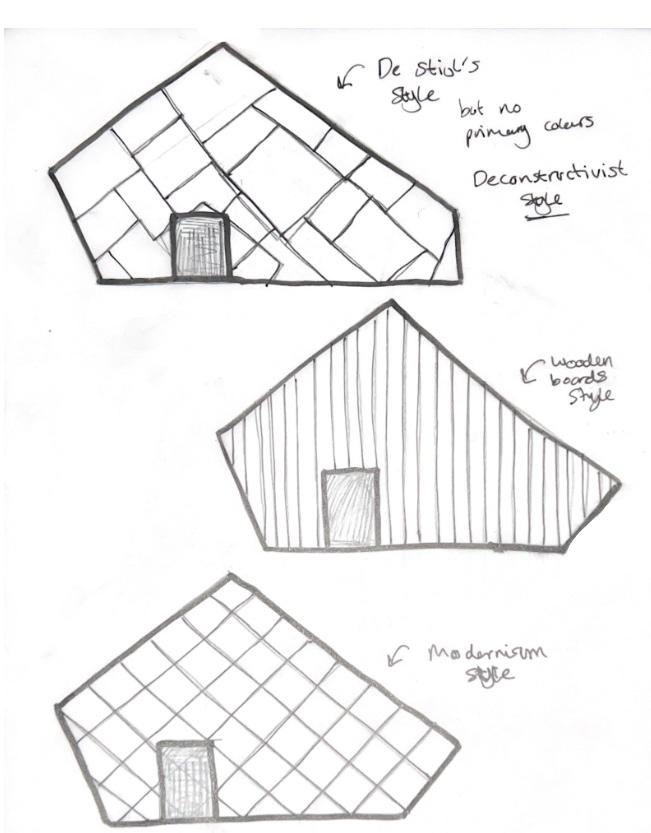 De Stijl's
Style
but no
primary colours
Deconstructivist
Style
wooden
boards
Style
Modernism
style